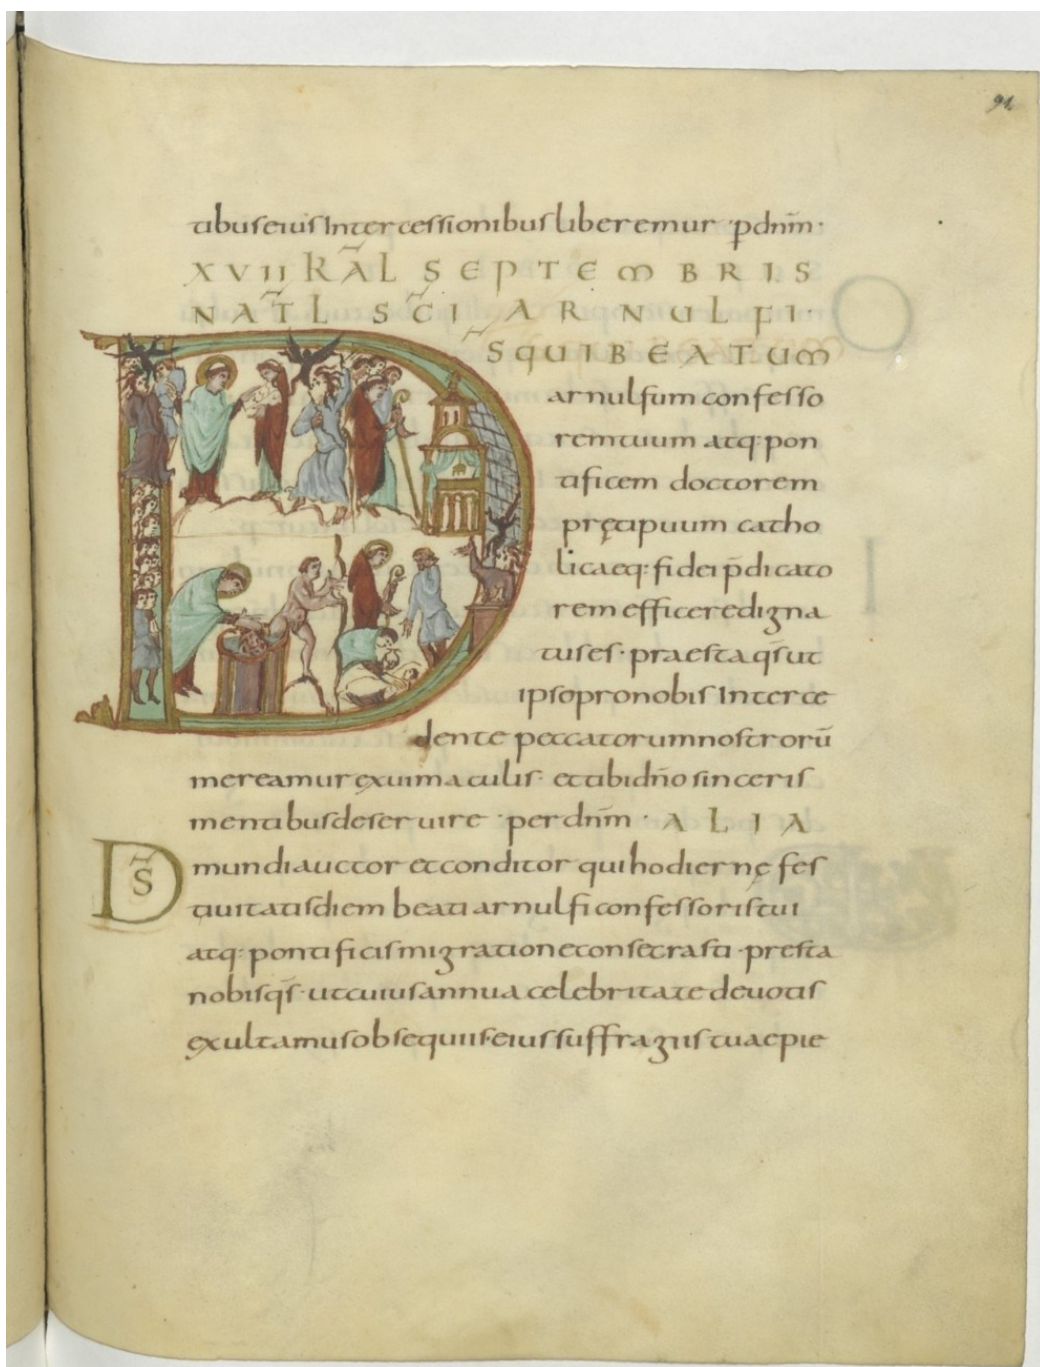 91
tibus eius Intercessionibus liberemur · p dnm̄ ·
XVII KAL̄ SEPTEMBRIS
NAT̄L SC̄I ARNULFI ·
DS̄ QUI BEATUM
arnulfum confesso
rem tuum atq: pon
tificem doctorem
pręcipuum catho
licaeq: fidei p̄dicato
rem efficere digna
tus es · praesta qs̄ ut
ipso pro nobis Interce
dente peccatorum nostrorū
mereamur exui maculis · et tibi dn̄o sinceris
mentibus deseruire · per dnm̄ · ALIA
DS̄ mundi auctor et conditor qui hodiernę fes
tiuitatis diem beati arnulfi confessoris tui
atq: pontificis migratione consecrasti · presta
nobis qs̄ · ut cuius annua celebritate deuotis
exultamus obsequiis · eius suffragiis tuae pie